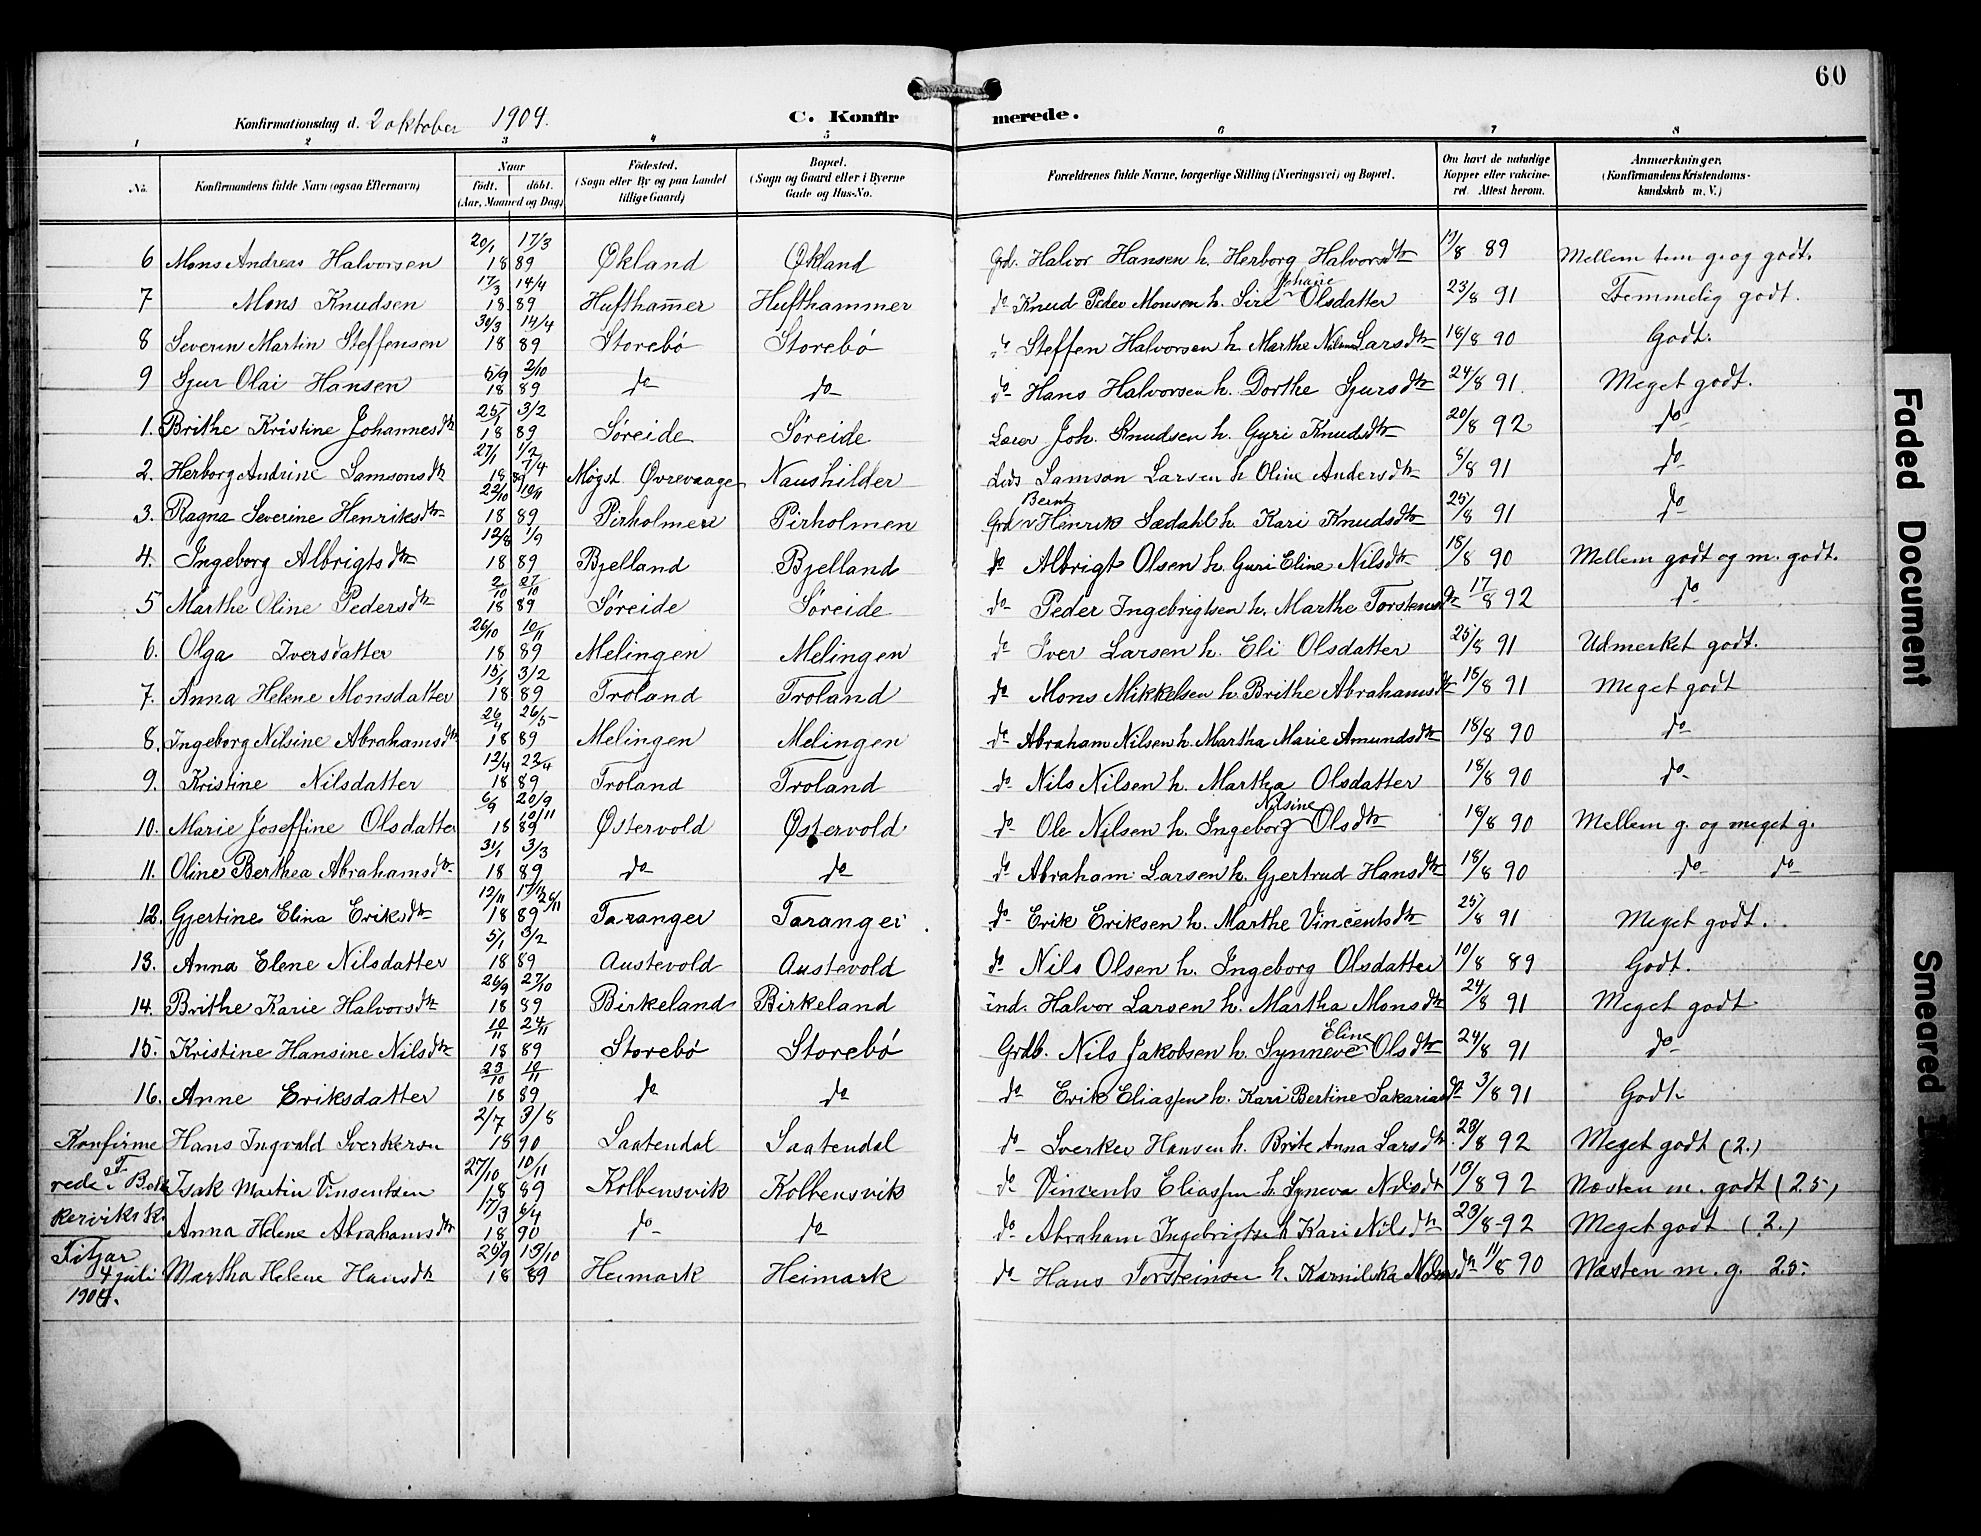 60
Konfirmationsdag d. 2 oktober 1904. C. Konfirmerede.
1 2 3 4 5 6 7 8
No. Konfirmandens fulde Navn (ogsaa Efternavn) Naar født. døbt. (Aar, Maaned og Dag) Fødested. (Sogn eller By og paa Landet tillige Gaard) Bopæl. (Sogn og Gaard eller i Byerne Gade og Hus-No. Forældrenes fulde Navne, borgerlige Stilling (Næringsvei) og Bopæl. Om havt de naturlige Kopper eller vakcineret. Attest herom. Anmærkninger. (Konfirmandens Kristendomskundskab m. V.)
6 Mons Andreas Halvorsen 20/1 17/3 18 89 Økland Økland Grd. Halvor Hansen h. Herborg Halvorsdtr 17/8 89 Mellem tem g. og godt.
7 Mons Knudsen 17/3 14/4 18 89 Hufthammer Hufthammer do Knud Peder Monsen h. Siri Johane Olsdatter 23/8 91 Temmelig godt.
8 Severin Martin Steffensen 30/3 14/4 18 89 Storebø Storebø do Steffen Halvorsen h. Marthe Nilsine Larsdtr 18/8 90 Godt.
9 Sjur Olai Hansen 5/9 2/10 18 89 do do do Hans Halvorsen h. Dorthe Sjursdtr 24/8 91. Meget godt.
1. Brithe Kristine Johannesdtr 25/1 3/2 18 89 Søreide Søreide Lærer Joh. Knudsen h. Gyri Knudsdtr 20/8 92 do
2. Herborg Andrine Samsonsdtr 27/1 1/2 7/4 18 89 Møgst. Øvrevaage Naushilder Samson Larsen h Oline Andersdtr 5/8 91 do
3. Ragna Severine Henriksdtr 22/10 10/11 18 89 Pirholmen Pirholmen Grd Bernt Hinrik Sædahl h. Kari Knudsdtr 25/8 91 do
4. Ingeborg Albrigtsdtr 12/8 1/9 18 89 Bjelland Bjelland do Albrigt Olsen h. Guri Eline Nilsdtr 18/8 90 Mellem godt og m. godt.
5 Marthe Oline Pedersdtr 2/10 27/10 18 89 Søreide Søreide do Peder Ingebrigtsen h. Marthe Torstensdtr 17/8 92 do
6. Olga Iversdatter 26/10 10/11 18 89 Melingen Melingen do Iver Larsen h. Eli Olsdatter 25/8 91 Udmerket godt.
7. Anna Helene Monsdatter 15/1 3/2 18 89 Troland Troland do Mons Mikkelsen h. Brithe Abrahamsdtr 15/8 91 Meget godt
8. Ingeborg Nilsine Abrahamsdtr 26/4 26/5 18 89 Melingen Melingen do Abraham Nilsen h. Martha Marie Amundsdtr 18/8 90 do
9. Kristine Nilsdatter 12/4 23/4 18 89 Troland Troland do Nils Nilsen h. Martha Olsdatter 18/8 90 do
10. Marie Joseffine Olsdatter 6/9 20/9 10/11 18 89 Østervold Østervold do Ole Nilsen h. Ingeborg Nilsine Olsdtr 18/8 90 Mellem g. og meget g.
11. Oline Berthea Abrahamsdtr 31/1 3/3 18 89 do do do Abraham Larsen h. Gjertrud Hansdtr 18/8 90 do do
12. Gjertine Elina Eriksdtr 12/11 17/11 26/11 18 89 Taranger Taranger do Erik Eriksen h. Marthe Vincentsdtr 25/8 91 Meget godt.
13. Anna Elene Nilsdatter 5/1 3/2 18 89 Austevold Austevold do Nils Olsen h. Ingeborg Olsdatter 10/8 89 Godt.
14. Brithe Karie Halvorsdtr 26/9 27/10 18 89 Birkeland Birkeland ind. Halvor Larsen h. Martha Monsdtr 24/8 91 Meget godt
15. Kristine Hansine Nilsdtr 10/11 24/11 18 89 Storebø Storebø Grdb. Nils Jakobsen h. Synneve Eline Olsdtr 24/8 91 do
16. Anne Eriksdatter 23/10 10/11 18 89 do do do Erik Eliassen h. Kari Bertine Sakariasdtr 3/8 91 Godt.
Konfirme Hans Ingvald Sverkersen 2/7 3/8 18 90 Laatendal Laatendal do Sverker Hansen h. Brite Anna Larsdtr 20/8 92 Meget godt (2.)
rede i Bek Isak Martin Vinsentsen 27/10 10/11 18 89 Kolbensvik Kolbensvik do Vincents Eliassen h. Syneva Nilsdtr 10/8 92 Næsten m. godt (2.5)
kerviks K. Anna Helene Abrahamsdtr 17/3 6/4 18 90 do do do Abraham Ingebrigtsen h Kari Nilsdtr 20/8 92 Meget godt (2.)
Fitjar 4 juli 1904. Martha Helene Hansdtr 26/9 13/10 18 89 Heimark Heimark do Hans Torsteinsen h. Karnilska 11/8 90 Næsten m. g. 2.5.
Faded Document
Smeared